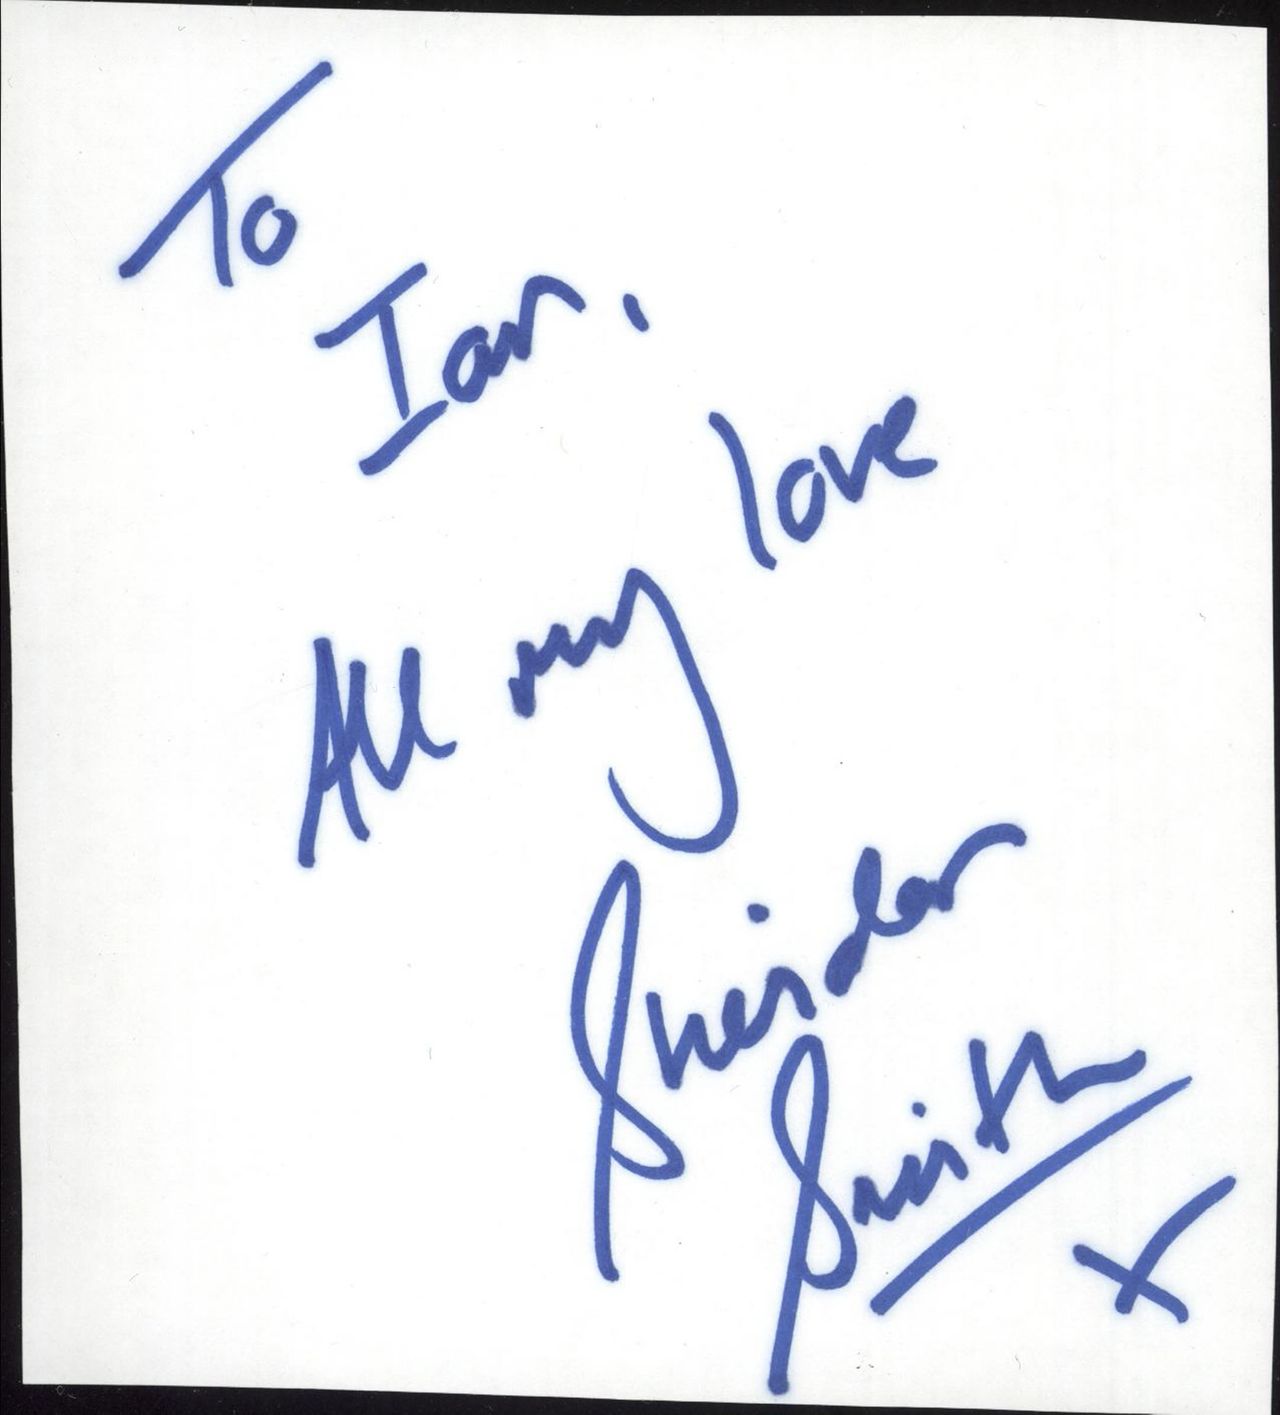 To
Ian,
All my love
Sheridan
Smith
x